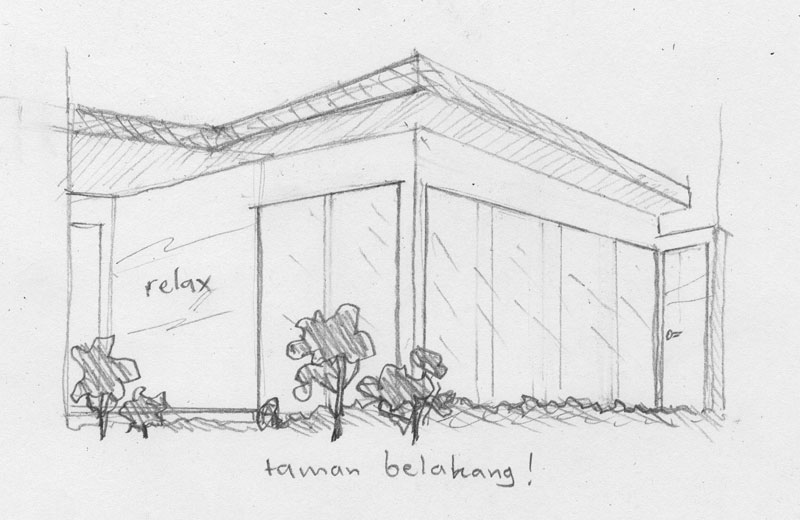 relax
taman belakang!